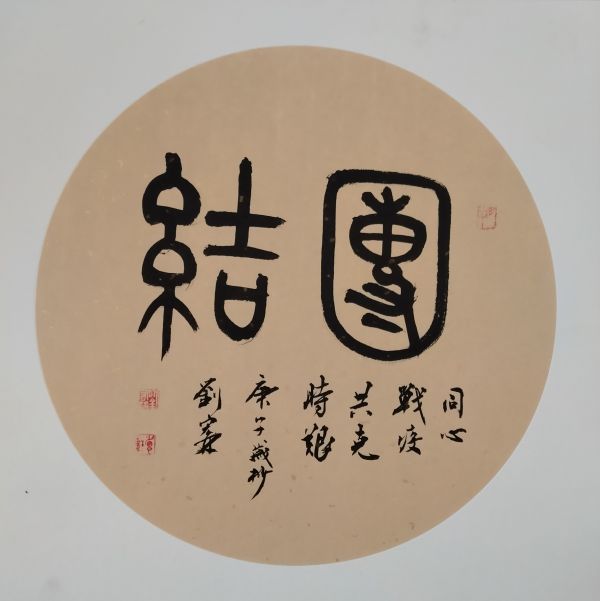 團結
同心
戰疫
共克
時艱
庚子歲杪
劉霖